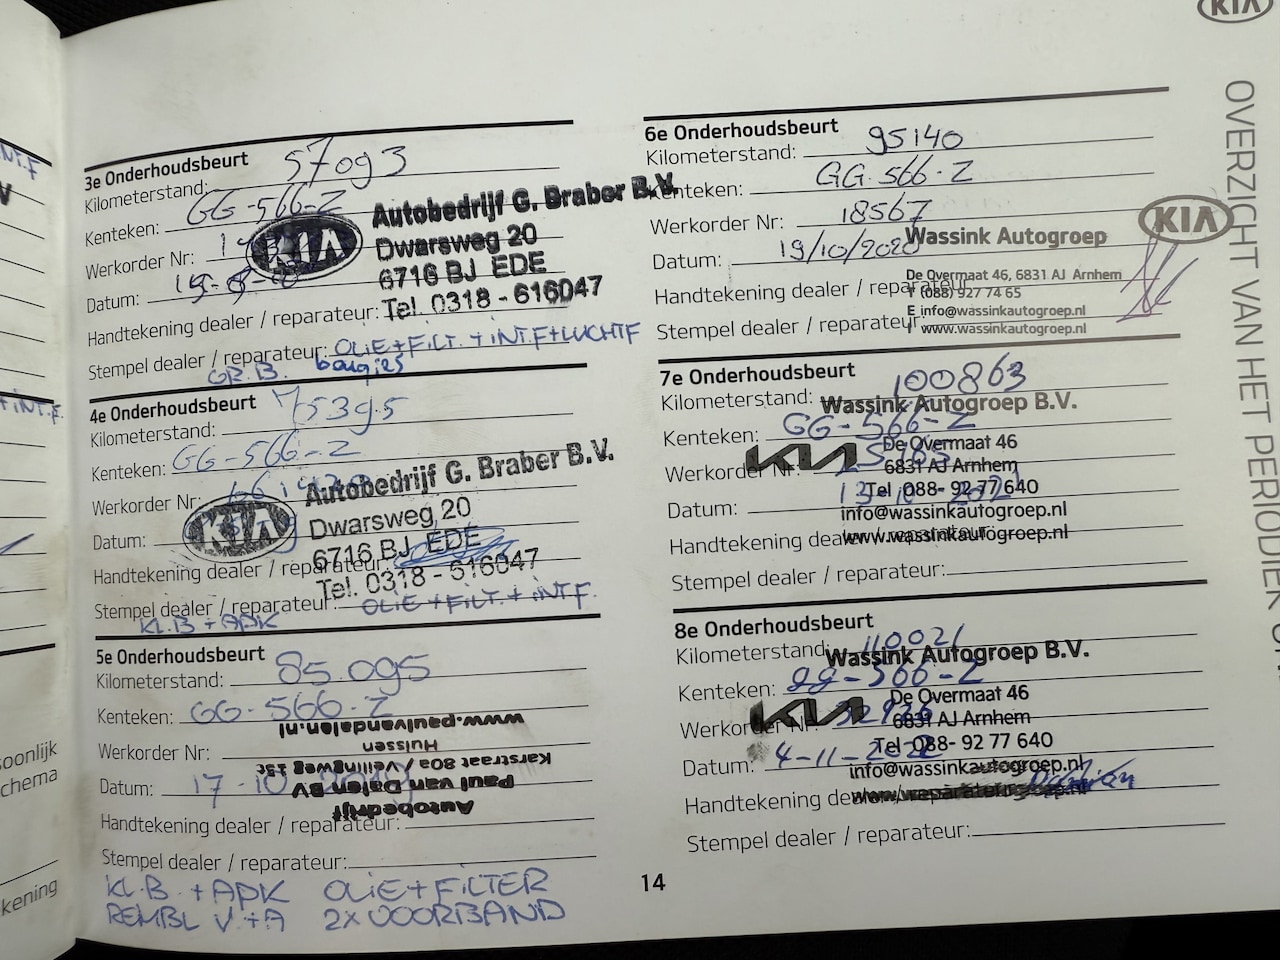 KIA
OVERZICHT VAN HET PERIODIEK
3e Onderhoudsbeurt
Kilometerstand: 57093
Kenteken: GG-566-Z
Werkorder Nr:
Datum:
Handtekening dealer / reparateur:
Stempel dealer / reparateur: OLIE+FILT. + INT.F+LUCHTF
GR.B. bougies
KIA
Autobedrijf G. Braber B.V.
Dwarsweg 20
6716 BJ EDE
Tel. 0318 - 616047
4e Onderhoudsbeurt
Kilometerstand: 75395
Kenteken: GG-566-Z
Werkorder Nr:
Datum:
Handtekening dealer / reparateur:
Stempel dealer / reparateur: OLIE+FILT.+INTF.
KL.B + APK
KIA
Autobedrijf G. Braber B.V.
Dwarsweg 20
6716 BJ EDE
Tel. 0318 - 616047
5e Onderhoudsbeurt
Kilometerstand: 85.095
Kenteken: GG-566-Z
Werkorder Nr:
Datum: 17-10
Handtekening dealer / reparateur:
Stempel dealer / reparateur:
Autobedrijf
Paul van Dalen BV
Karstraat 80a / Veilingweg 13c
Huissen
www.paulvandalen.nl
KL.B + APK OLIE+FILTER
REMBL V.+A 2X VOORBAND
6e Onderhoudsbeurt
Kilometerstand: 95140
Kenteken: GG.566-Z
Werkorder Nr: 18567
Datum: 19/10/2020
Handtekening dealer / reparateur:
Stempel dealer / reparateur:
KIA
Wassink Autogroep
De Overmaat 46, 6831 AJ Arnhem
T (088) 927 74 65
E info@wassinkautogroep.nl
I www.wassinkautogroep.nl
7e Onderhoudsbeurt
Kilometerstand: 100863
Kenteken: GG-566-Z
Werkorder Nr:
Datum:
Handtekening dealer / reparateur:
Stempel dealer / reparateur:
KIA
Wassink Autogroep B.V.
De Overmaat 46
6831 AJ Arnhem
Tel 088- 92 77 640
info@wassinkautogroep.nl
www.wassinkautogroep.nl
8e Onderhoudsbeurt
Kilometerstand: 110021
Kenteken: gg-566-Z
Werkorder Nr:
Datum: 4-11-2022
Handtekening dealer / reparateur:
Stempel dealer / reparateur:
KIA
Wassink Autogroep B.V.
De Overmaat 46
6831 AJ Arnhem
Tel 088- 92 77 640
info@wassinkautogroep.nl
14
soonlijk
schema
kening